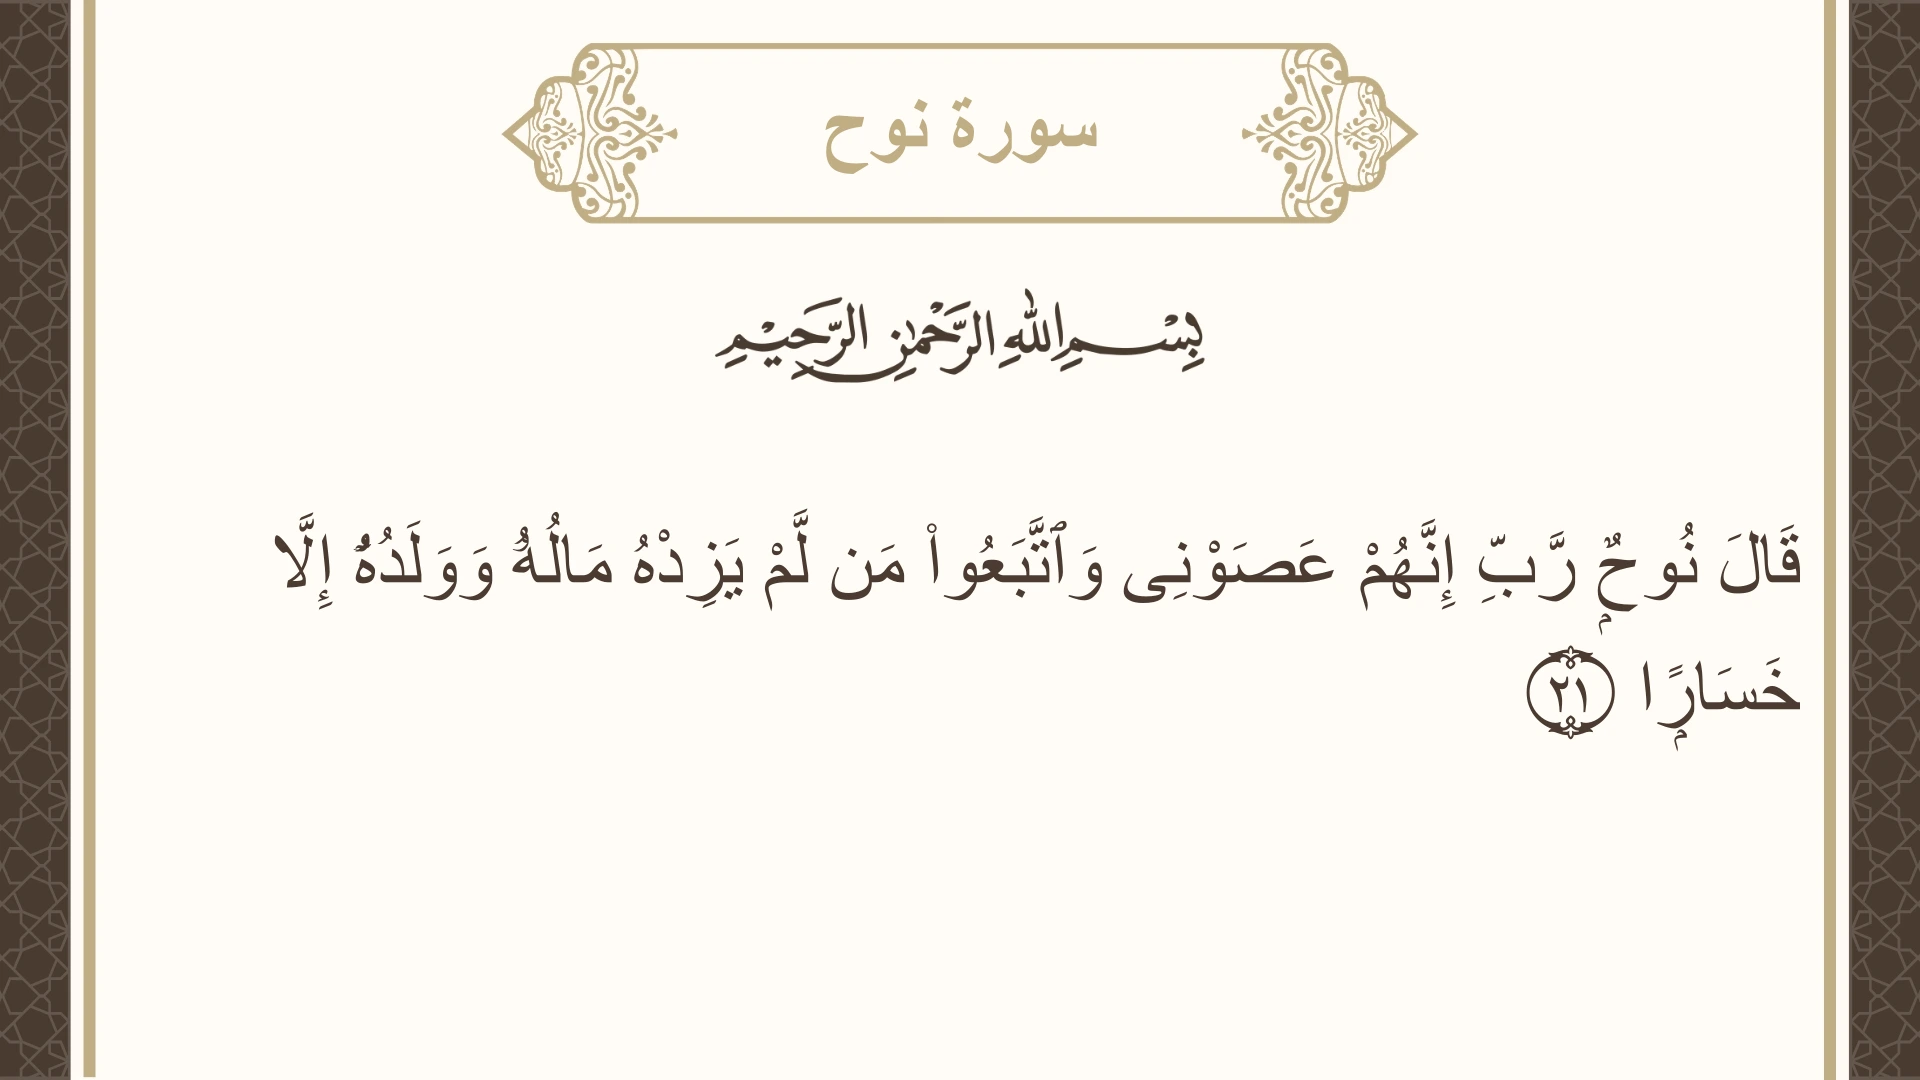 سورة نوح
بِسْمِ اللهِ الرَّحْمٰنِ الرَّحِيْمِ
قَالَ نُوحٌۭ رَّبِّ إِنَّهُمْ عَصَوْنِى وَٱتَّبَعُوا۟ مَن لَّمْ يَزِدْهُ مَالُهُۥ وَوَلَدُهُۥٓ إِلَّا
خَسَارًۭا ٢١